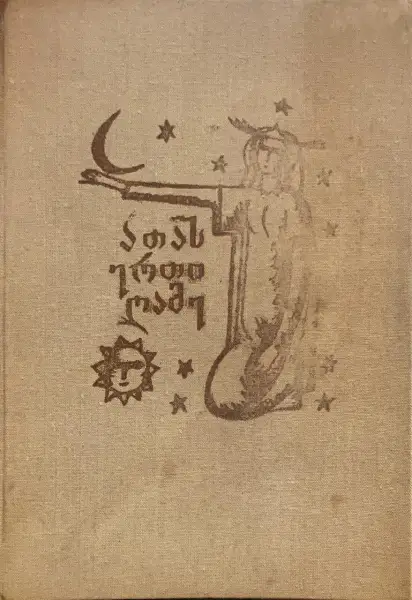 ათას
ერთი
ღამე